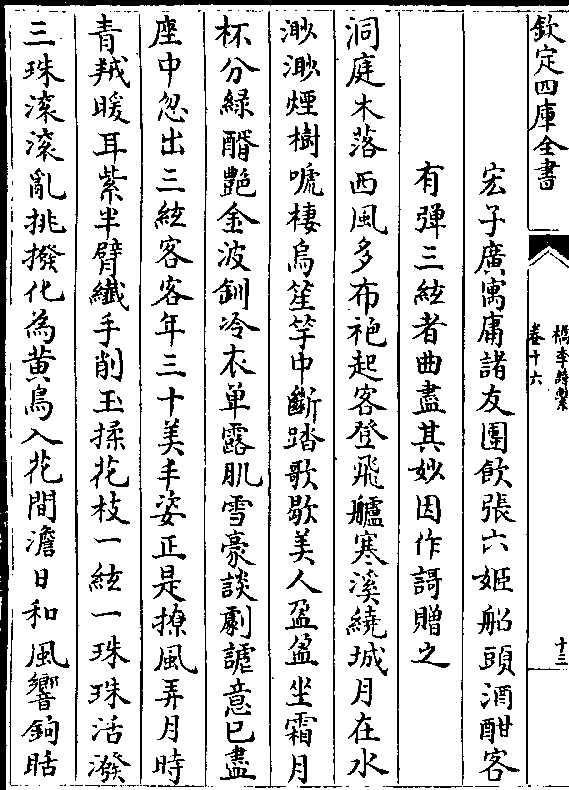 欽定四庫全書
檇李詩繫
卷十六
十三
宏子廣寓庸諸友團飲張六姬船頭酒酣客
有彈三絃者曲盡其妙因作謌贈之
洞庭木落西風多布袍起客登飛艫寒溪繞城月在水
渺渺煙樹唬棲烏笙竽中斷踏歌歇美人盈盈坐霜月
杯分綠醑艷金波釧冷衣单露肌雪豪談劇謔意已盡
座中忽出三絃客客年三十美丰姿正是撩風弄月時
青羢暖耳紫半臂纖手削玉揉花枝一絃一珠珠活潑
三珠滚滚亂挑撥化為黄鳥入花間澹日和風響鉤聒